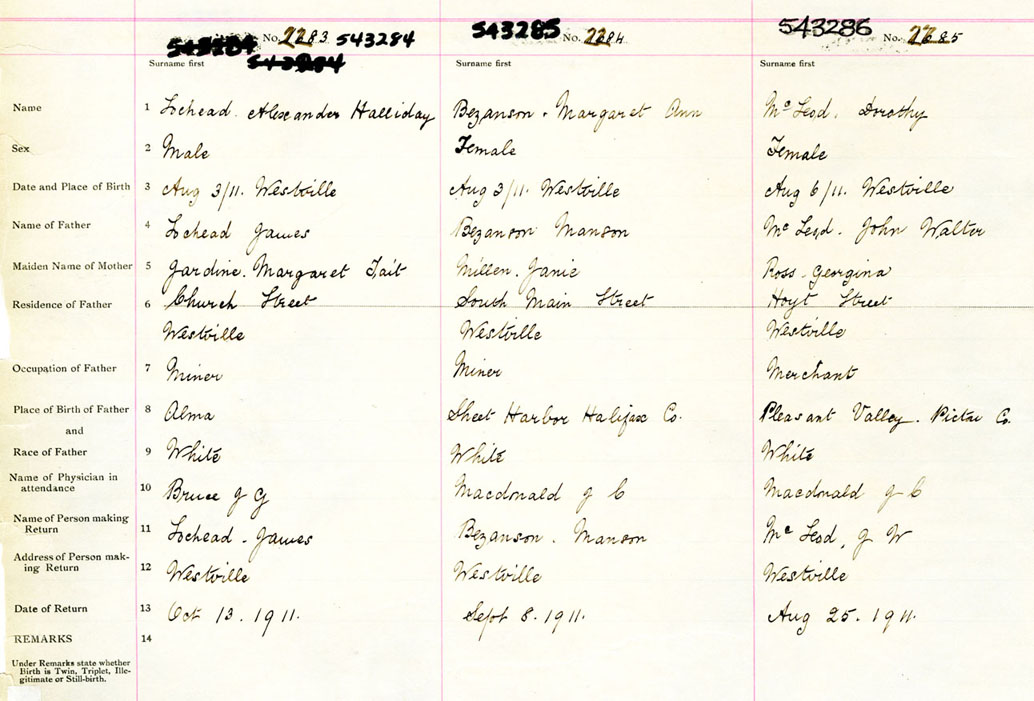 543284 No. 2283 543284 543285 No. 2284 543286 No. 2285
543284
Surname first Surname first Surname first
Name 1 Lochead. Alexander Halliday Bezanson. Margaret Ann McLeod, Dorothy
Sex 2 Male Female Female
Date and Place of Birth 3 Aug 3/11. Westville Aug 3/11. Westville Aug 6/11. Westville
Name of Father 4 Lochead James Bezanson Manson McLeod. John Walter
Maiden Name of Mother 5 Jardine. Margaret Tait Millen. Janie Ross - Georgina
Residence of Father 6 Church Street South Main Street Hoyt Street
Westville Westville Westville
Occupation of Father 7 Miner Miner Merchant
Place of Birth of Father 8 Alma Sheet Harbor Halifax Co. Pleasant Valley. Pictou Co.
and
Race of Father 9 White White White
Name of Physician in
attendance 10 Bruce J G Macdonald J C Macdonald J C
Name of Person making
Return 11 Lochead - James Bezanson. Manson McLeod, J W
Address of Person mak-
ing Return 12 Westville Westville Westville
Date of Return 13 Oct 13. 1911. Sept 8. 1911. Aug 25. 1911.
REMARKS 14
Under Remarks state whether
Birth is Twin, Triplet, Ille-
gitimate or Still-birth.